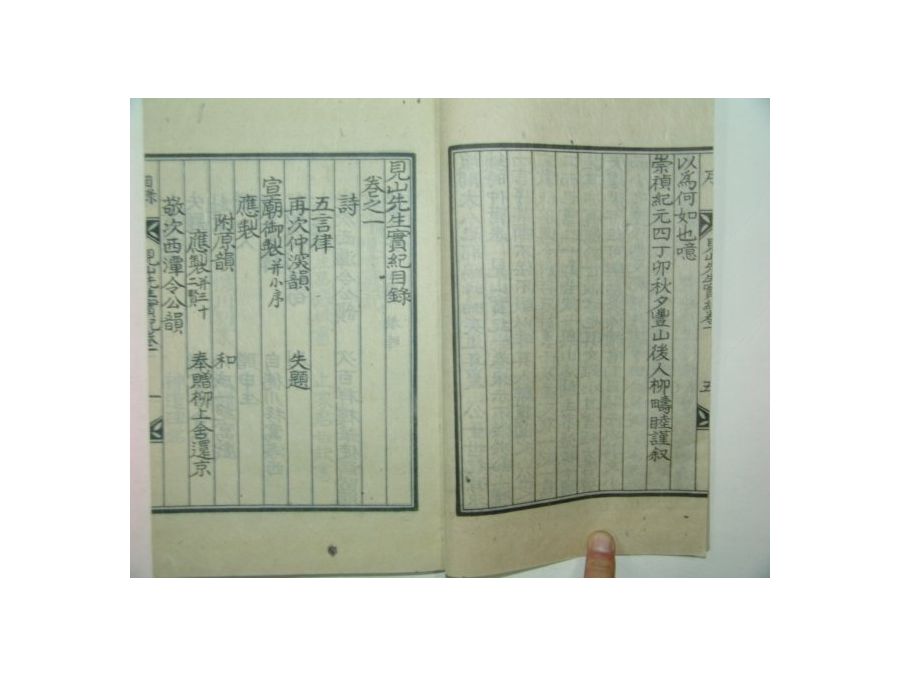 以為何如也噫
崇禎紀元四丁卯秋夕豐山後人柳疇睦謹叙
序
見山先生實紀卷一
五
見山先生實紀目錄
卷之一
詩
五言律
再次仲溪韻 失題
宣廟御製并小序
應製
附原韻 和
應製并三十二賢 奉贈柳上舍還京
敬次西潭令公韻
目錄
見山先生實紀卷一
一